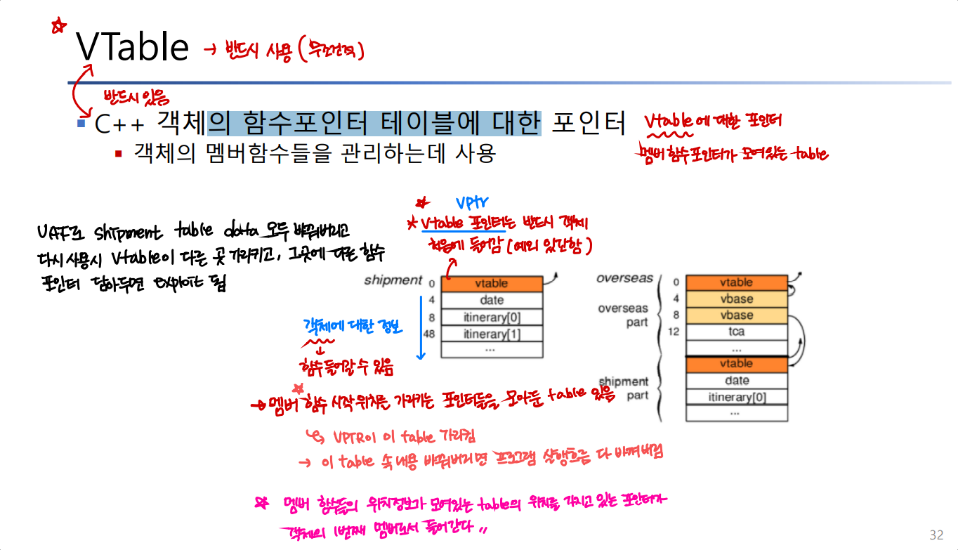 VTable → 반드시 사용 (무조건적)
반드시 있음
C++ 객체의 함수포인터 테이블에 대한 포인터
Vtable에 대한 포인터
객체의 멤버함수들을 관리하는데 사용
멤버함수포인터가 모여있는 table
UAF로 shipment table data 모두 바꿔버리고
다시 사용시 Vtable이 다른 곳 가리키고, 그곳에 다른 함수
포인터 담아두면 exploit 됨
VPtr
Vtable 포인터는 반드시 객체
처음에 들어감 (예외 있긴함)
shipment 0 vtable
4 date
8 itinerary[0]
48 itinerary[1]
...
객체에 대한 정보
함수 들어갈 수 있음
overseas 0 vtable
4 vbase
overseas part 8 vbase
12 tca
...
vtable
shipment part date
itinerary[0]
...
→ 멤버 함수 시작 위치를 가리키는 포인터들을 모아둔 table 있음
↳ VPTR이 이 table 가리킴
→ 이 table 속 내용 바꿔버리면 프로그램 실행흐름 다 바껴버림
멤버 함수들의 위치정보가 모여있는 table의 위치를 가지고 있는 포인터가
객체의 1번째 멤버로서 들어간다
32